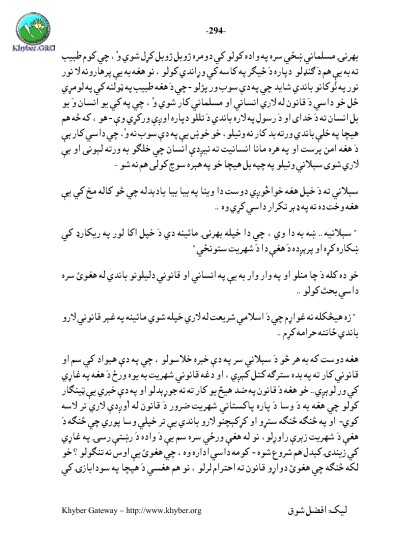 Khyber.ORG
-294-
بهرنۍ مسلمانې ښځې سره په واده کولو کې دومره ژوبل ژوبل کړل شوی ؤ ، چې کوم طبيب
ته به يې هم د ګنډلو دپاره د ځيګر په کاسه کې وړاندې کولو ، نو هغه به يې پرهارونه لا نور
نور په نوکانو باندې شايد چې په دې سوب ورپزلو - چې د هغه طبيب په ټولنه کې په لومړي
ځل خو داسې د قانون له لارې انساني او مسلماني کار شوی ؤ ، چې په کې يو انسان ؤ يو
بل انسان ته د خدای او د رسول په لاره باندې د تللو دپاره اوږې ورکړې وې - هو ، که څه هم
هيچا په خلې باندې ورته بد کار نه وئيلو ، خو خوښ يې په دې سوب نه ؤ . چې داسې کار يې
د هغه امن پرست او په هره مانا انسانيت ته نيږدې انسان چې خلګو به ورته ليونی او بې
لارې شوی سېلانی وئيلو په چپه بل هيچا خو په هېره سوچ کولی هم نه شو -
سېلاني ته د خپل هغه خواخوږي دوست دا وينا په بيا بيا يادېدله چې څو کاله مخ کې يې
هغه وخت ده ته په ډېر تکرار داسې کړې وه ..
" سېلانيه .. ښه به دا وي ، چې دا خپله بهرنۍ مائينه دې د خپل اکا لور په ريکارډ کې
ښکاره کړه او پرېږده د هغې دا د شهريت ستونځې "
خو ده کله د چا منلو او په وار وار به يې په انساني او قانوني دليلونو باندې له هغوئ سره
داسې بحث کولو ..
" زه هيڅکله نه غواړم چې د اسلامي شريعت له لارې خپله شوې مائينه په غېر قانوني لارو
باندې ځانته حرامه کړم ..
هغه دوست که به هر څو د سېلاني سر په دې خبره خلاسولو ، چې په دې هېواد کې سم او
قانوني کار ته په بده سترګه کتل کېږي ، او دغه قانوني شهريت به يوه ورځ د هغه په غاړې
کې ورلوېږي .. خو هغه د قانون په ضد هيڅ يو کار ته نه جوړېدلو او په دې خبرې يې ټينګار
کولو چې هغه به د وسا د پاره پاکستاني شهريت ضرور د قانون له آوږدې لارې تر لاسه
کوي - او په څنګه څنګه سترو او کړکېچنو لارو باندې يې تر خپلې وسا پورې چې څنګه د
هغې د شهريت زېرې راوړلو ، نو له هغې ورځې سره سم يې د واده د رښتې رسۍ په غاړې
کې زيندۍ کېدل هم شروع شوه - کومه داسې اداره وه ، چې هغوئ يې اوس نه تنګولو ؟ خو
لکه څنګه چې هغوئ دواړو قانون ته احترام لرلو ، نو هم هغسې د هيچا په سودابازۍ کې
Khyber Gateway – http://www.khyber.org
ليک: افضل شوق